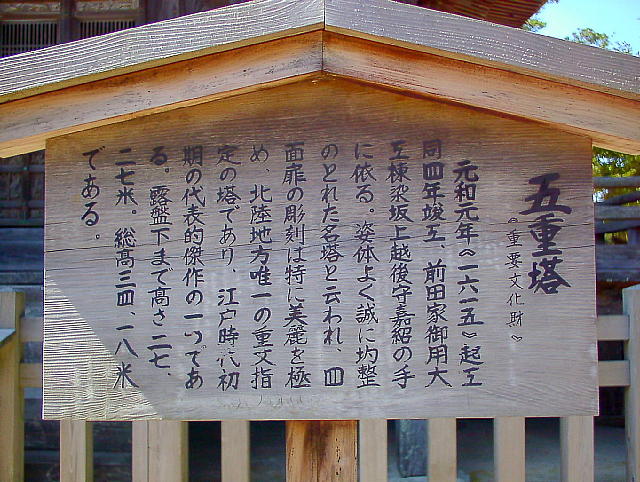 五重塔
《重要文化財》
元和元年《一六一五》起工
同四年竣工、前田家御用大
工棟梁坂上越後守嘉紹の手
に依る。姿体よく誠に均整
のとれた名塔と云われ、四
面扉の彫刻は特に美麗を極
め、北陸地方唯一の重文指
定の塔であり、江戸時代初
期の代表的傑作の一つであ
る。露盤下まで高さ二七、
二七米。総高三四、一八米
である。